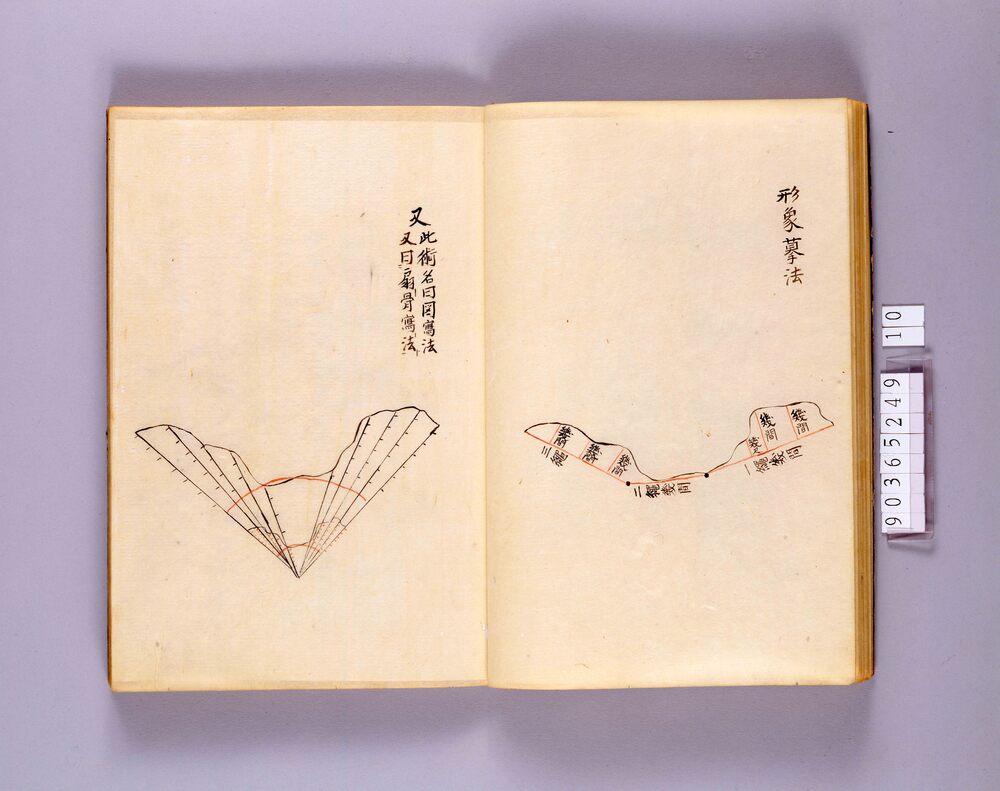 形象摹法
一繩幾間
幾間
幾間
幾間
二繩幾間
幾間
幾間
幾間
三繩
又
此術名曰図寫法
又曰扇骨寫法
10
90365249